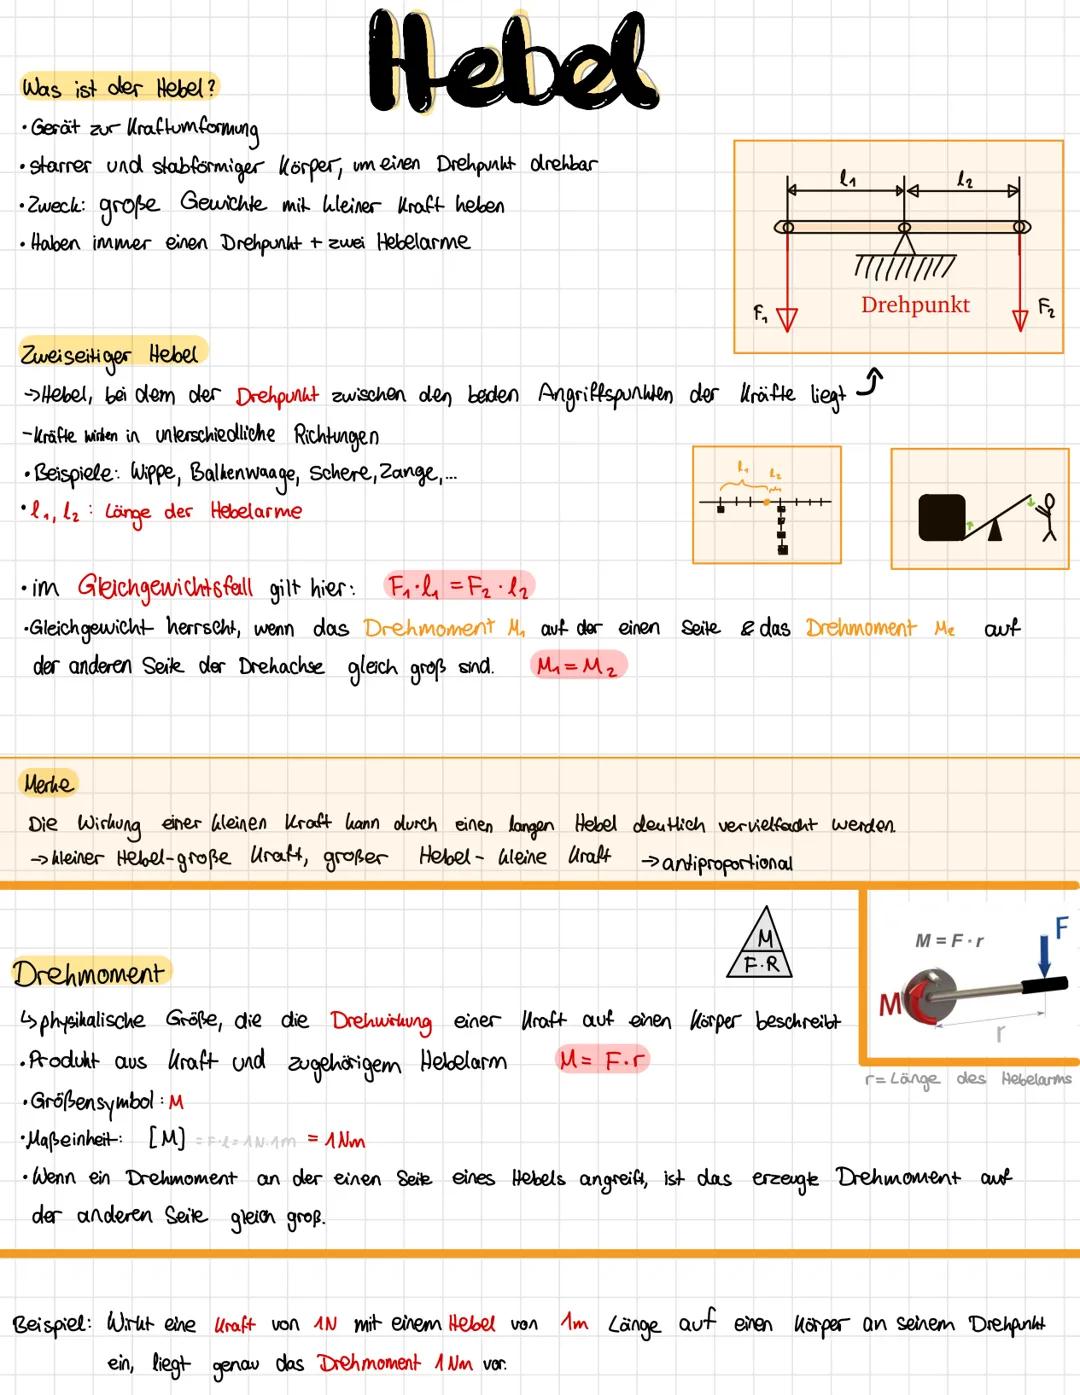 Hebel
Was ist der Hebel?
• Gerät zur Kraftumformung
• starrer und stabförmiger Körper, um einen Drehpunkt drehbar
• Zweck: große Gewichte mit kleiner Kraft heben
• Haben immer einen Drehpunkt + zwei Hebelarme
l₁ l₂
Drehpunkt
F₁ F₂
Zweiseitiger Hebel
→ Hebel, bei dem der Drehpunkt zwischen den beiden Angriffspunkten der Kräfte liegt
- Kräfte wirken in unterschiedliche Richtungen
• Beispiele: Wippe, Balkenwaage, Schere, Zange,...
• l₁, l₂ : Länge der Hebelarme
l₁ l₂
• im Gleichgewichtsfall gilt hier: F₁·l₁ = F₂·l₂
• Gleichgewicht herrscht, wenn das Drehmoment M₁ auf der einen Seite & das Drehmoment M₂ auf
der anderen Seite der Drehachse gleich groß sind. M₁ = M₂
Merke
Die Wirkung einer kleinen Kraft kann durch einen langen Hebel deutlich vervielfacht werden.
→ kleiner Hebel - große Kraft, großer Hebel - kleine Kraft → antiproportional
M
F·R
M = F · r
F
M
r
r = Länge des Hebelarms
Drehmoment
↳ physikalische Größe, die die Drehwirkung einer Kraft auf einen Körper beschreibt
• Produkt aus Kraft und zugehörigem Hebelarm M = F·r
• Größensymbol : M
• Maßeinheit: [M] = F·l = 1N·1m = 1Nm
• Wenn ein Drehmoment an der einen Seite eines Hebels angreift, ist das erzeugte Drehmoment auf
der anderen Seite gleich groß.
Beispiel: Wirkt eine Kraft von 1N mit einem Hebel von 1m Länge auf einen Körper an seinem Drehpunkt
ein, liegt genau das Drehmoment 1 Nm vor.